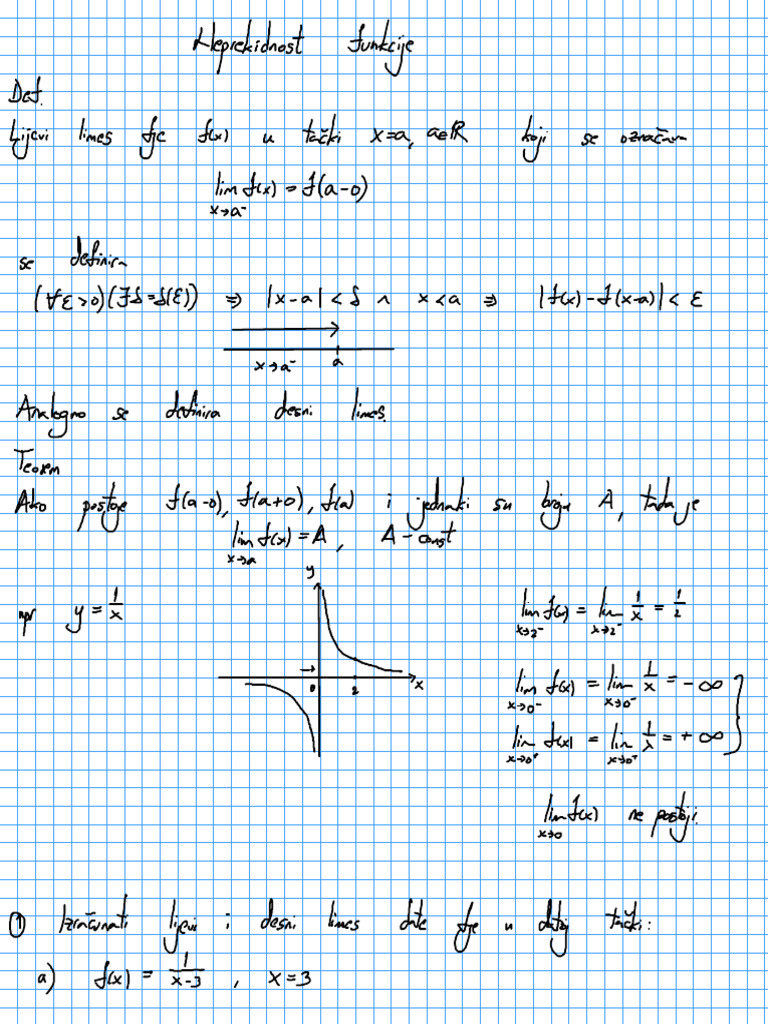 Neprekidnost funkcije
Def.
Lijevi limes fje f(x) u tački x=a, a∈ℝ koji se označava
lim f(x) = f(a-0)
x→a⁻
se definira
(∀ε>0)(∃δ=δ(ε)) ⇒ |x-a|<δ ∧ x<a ⇒ |f(x)-f(x-a)|<ε
x→a⁻ a
Analogno se definira desni limes.
Teorem
Ako postoje f(a-0), f(a+0), f(a) i jednaki su broju A, tada je
lim f(x) = A, A-const
x→a
npr y = 1/x
y
0 2 x
lim f(x) = lim 1/x = 1/2
x→2⁻ x→2⁻
lim f(x) = lim 1/x = -∞
x→0⁻ x→0⁻
lim f(x) = lim 1/x = +∞
x→0⁺ x→0⁺
lim f(x) ne postoji.
x→0
① Izračunati lijevi i desni limes date fje u datoj tački:
a) f(x) = 1/(x-3), x=3